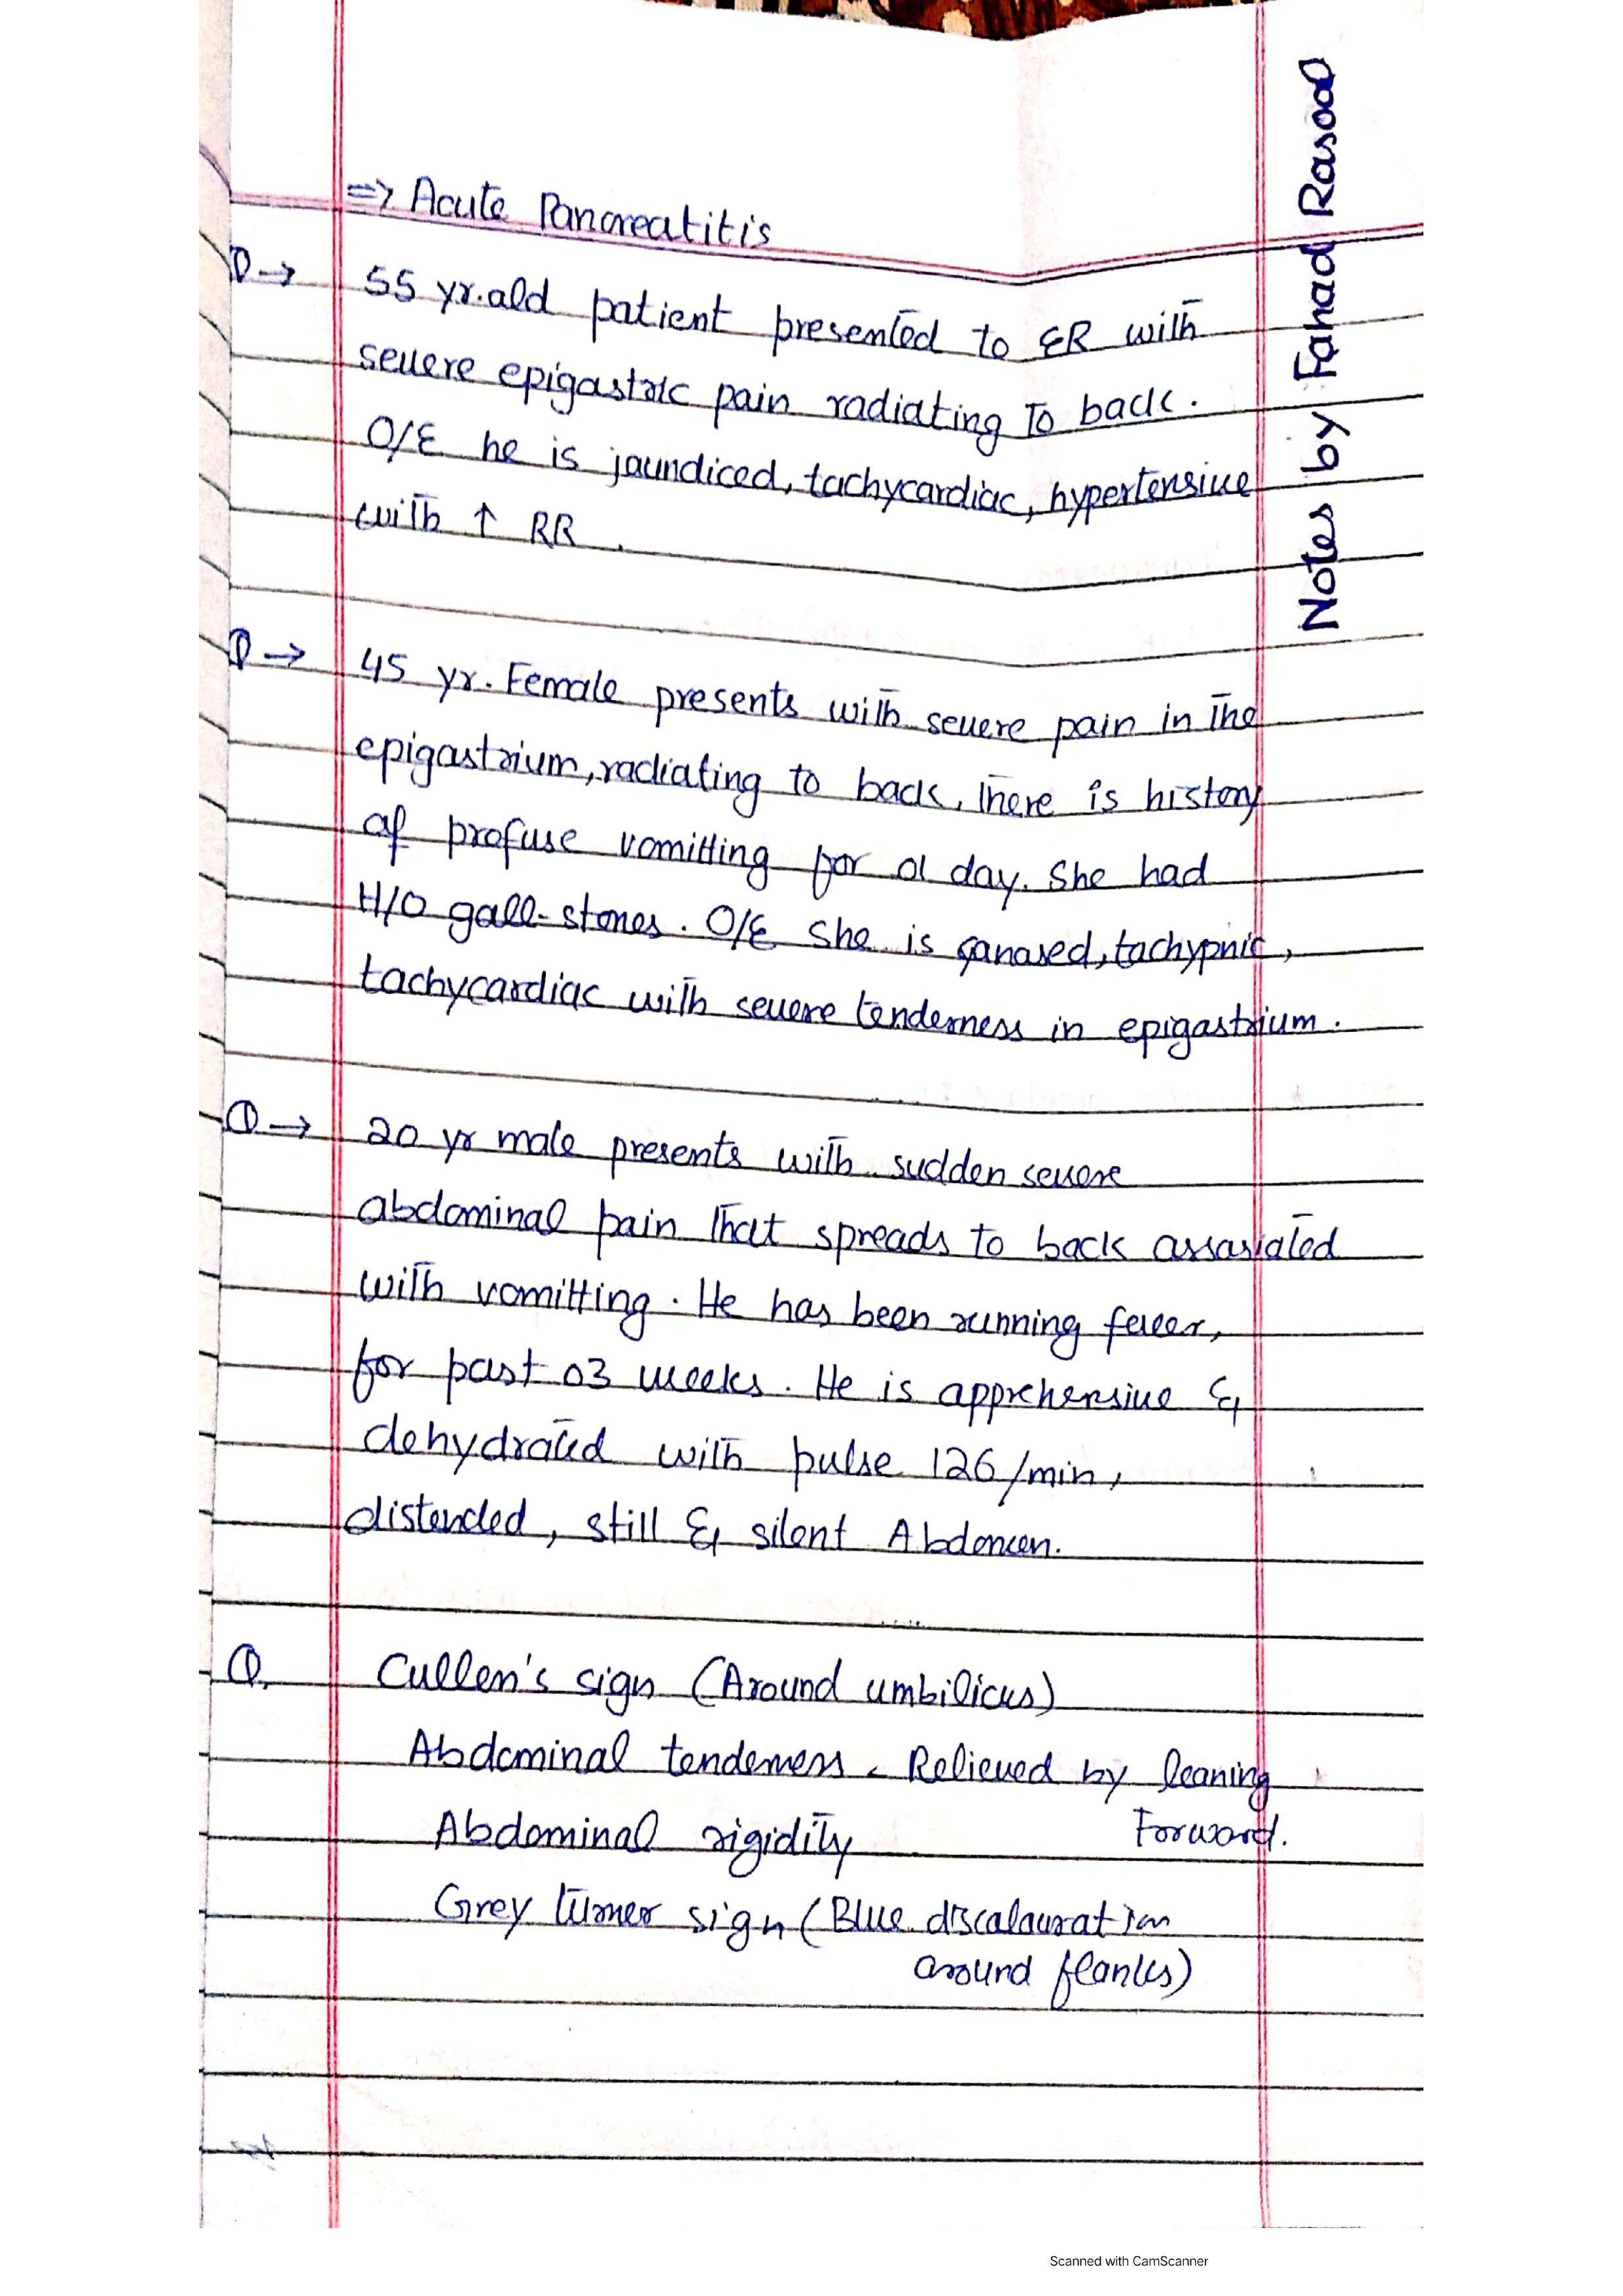 => Acute Pancreatitis
Q→ 55 yr.old patient presented to ER with
severe epigastric pain radiating To back.
O/E he is jaundiced, tachycardiac, hypertensive
with ↑ RR.
Q→ 45 yr. Female presents with severe pain in The
epigastrium, radiating to back, There is history
of profuse vomitting for 01 day. She had
H/O gall-stones. O/E She is tachypnic,
tachycardiac with severe tenderness in epigastrium.
Q→ 20 yr male presents with sudden severe
abdominal pain That spreads to back assosiated
with vomitting. He has been running fever,
for past 03 weeks. He is apprehensive &
dehydrated with pulse 126/min,
distended, still & silent Abdomen.
Q. Cullen's sign (Around umbilicus)
Abdominal tenderness - Relieved by leaning
Forward.
Abdominal rigidity
Grey turner sign (Blue discolouration
around flanks)
Notes by Fahad Rasool
Scanned with CamScanner